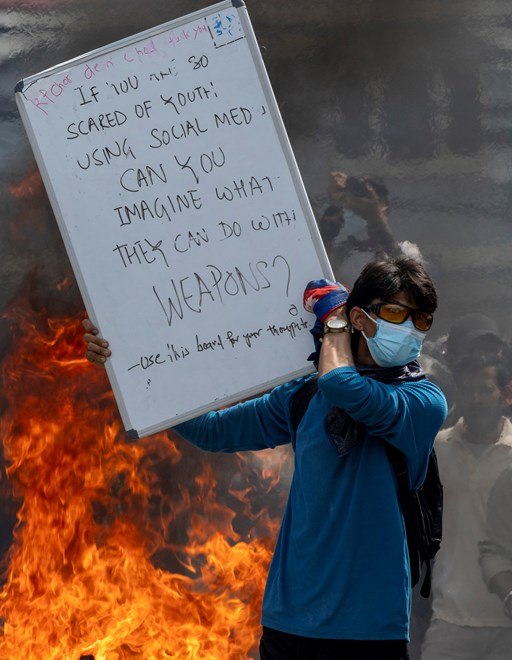 IF YOU ARE SO
SCARED OF YOUTH!
USING SOCIAL MED
CAN YOU
IMAGINE WHAT
THEY CAN DO WITH
WEAPONS?
- use this board for your thoughts